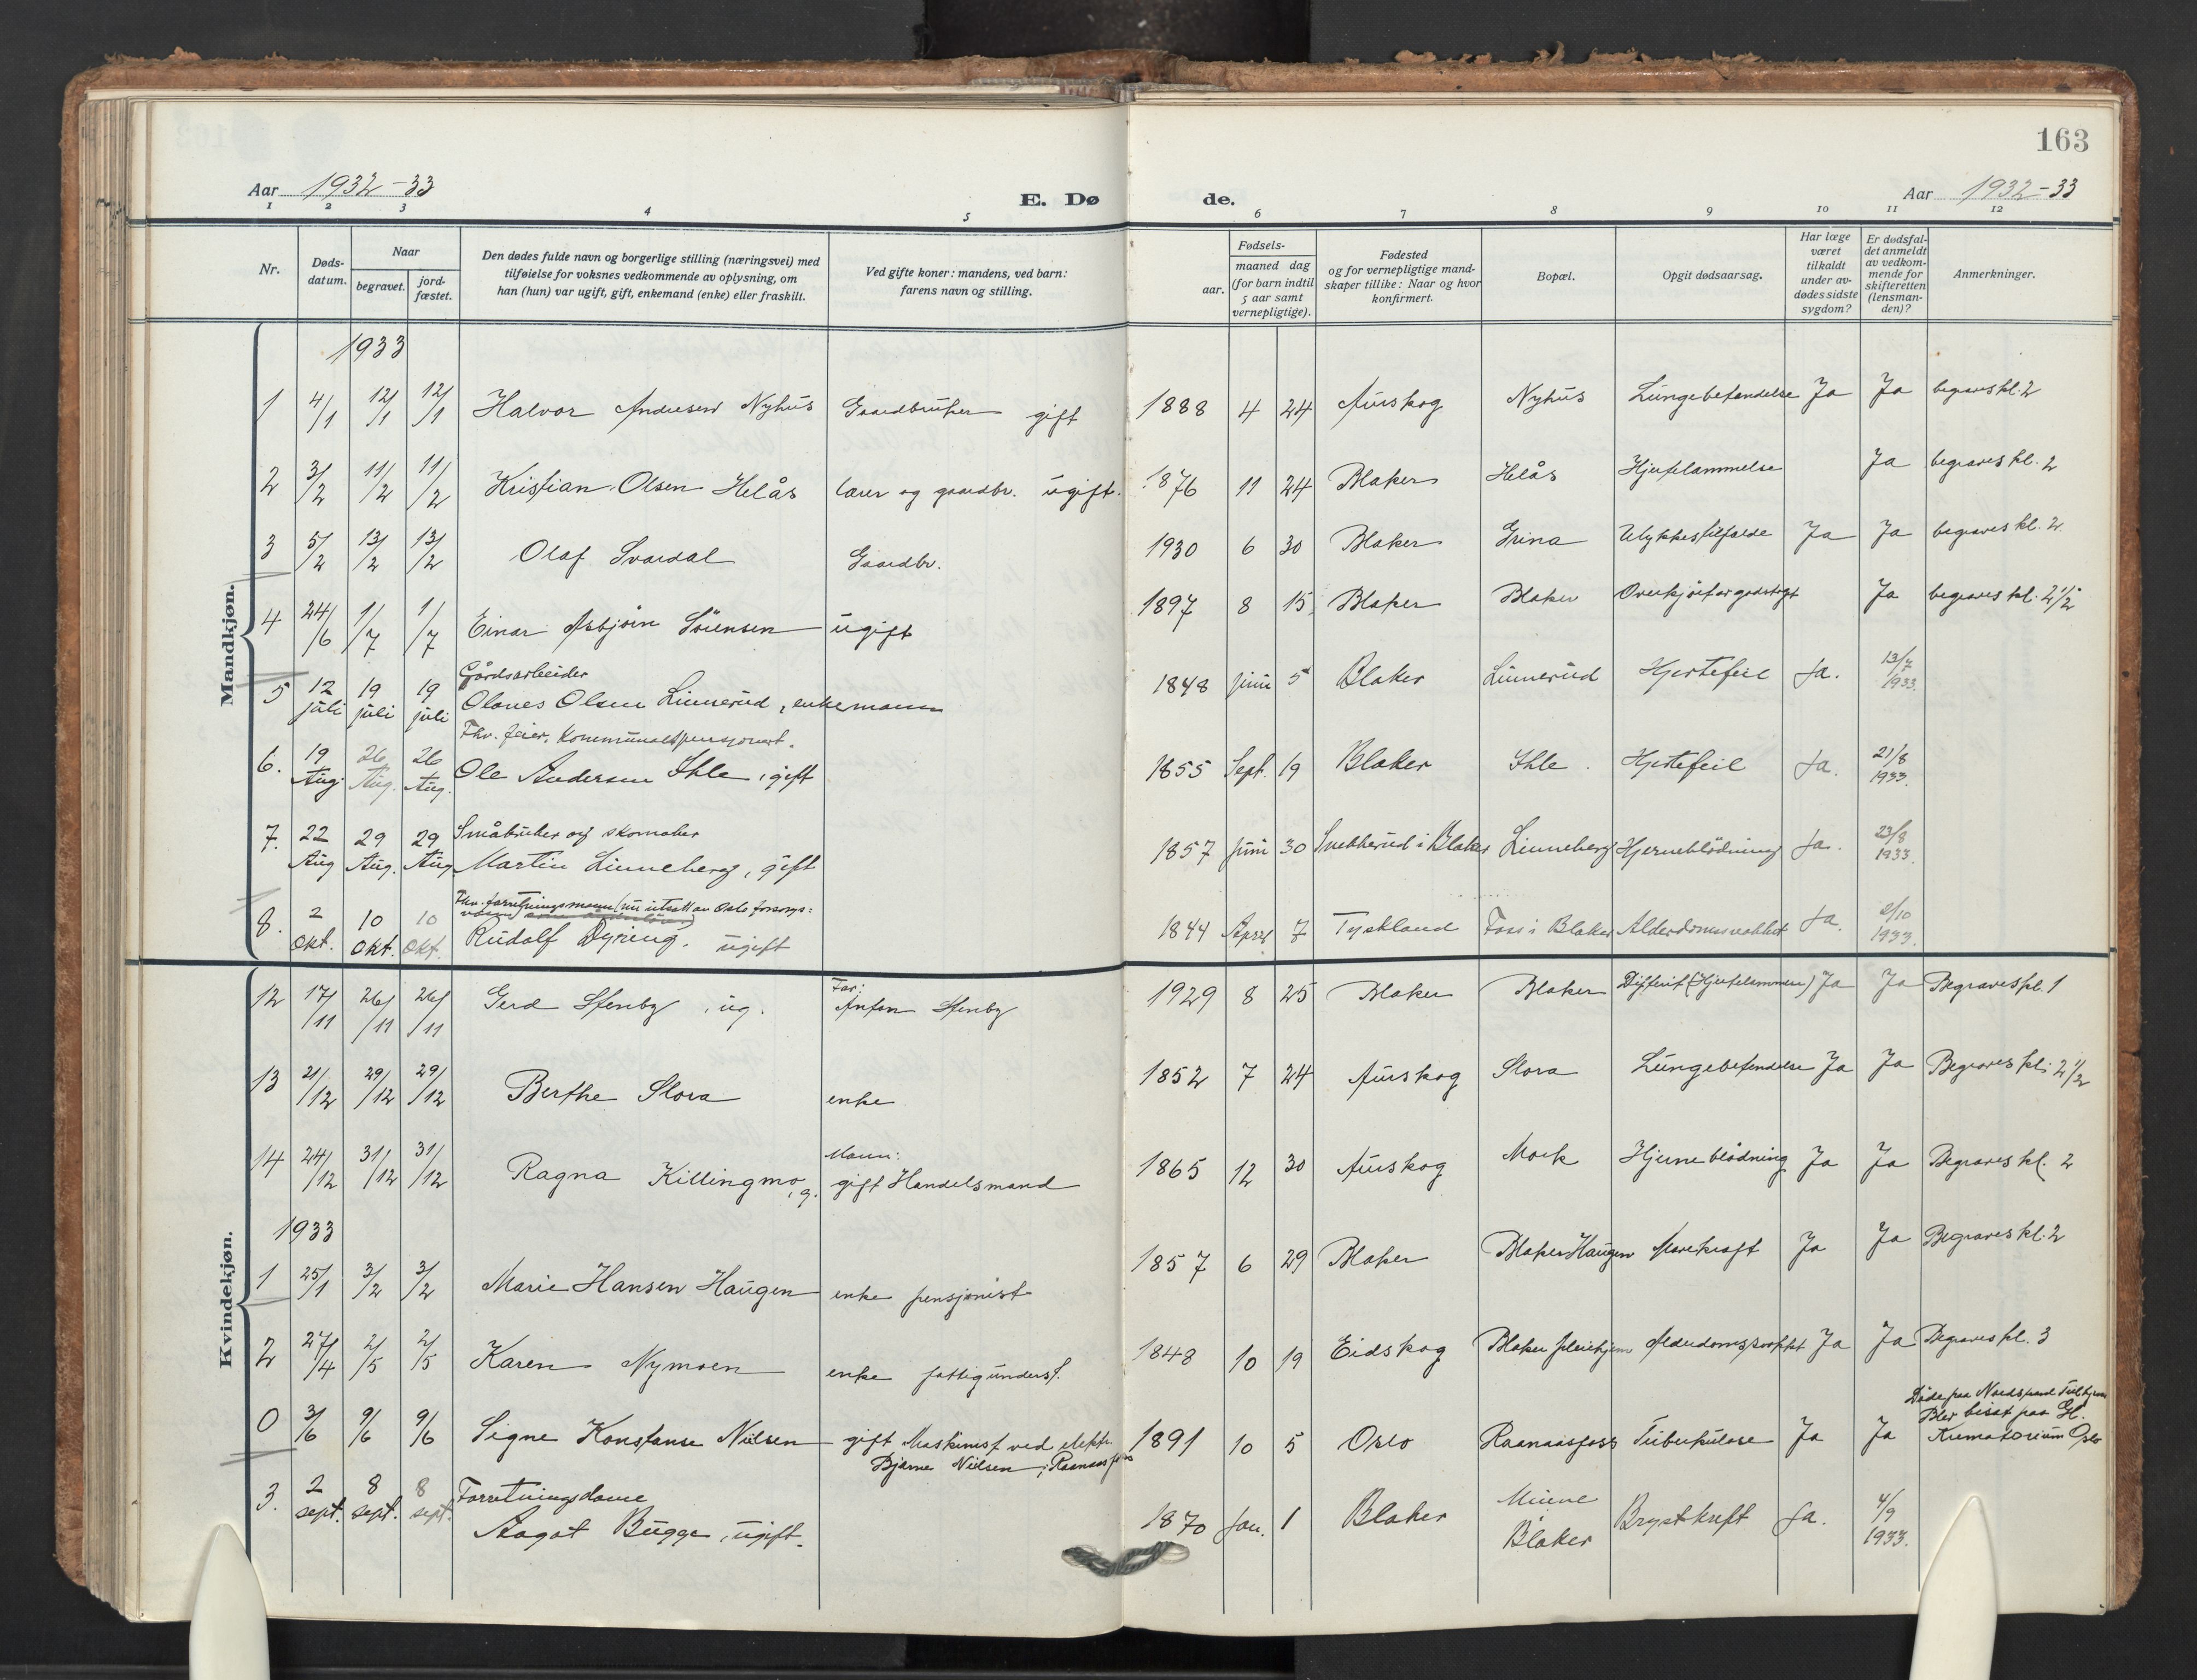 163
Aar 1932-33
E. Dø
de.
Aar 1932-33
1 2 3 4 5 6 7 8 9 10 11 12
Nr.
Døds-
datum.
Naar
begravet.
jord-
fæstet.
Den dødes fulde navn og borgerlige stilling (næringsvei) med
tilføielse for voksnes vedkommende av oplysning, om
han (hun) var ugift, gift, enkemand (enke) eller fraskilt.
Ved gifte koner: mandens, ved barn:
farens navn og stilling.
Fødsels-
aar.
maaned dag
(for barn indtil
5 aar samt
vernepligtige).
Fødested
og for vernepligtige mand-
skaper tillike: Naar og hvor
konfirmert.
Bopæl.
Opgit dødsaarsag.
Har læge
været
tilkaldt
under av-
dødes sidste
sygdom?
Er dødsfal-
det anmeldt
av vedkom-
mende for
skifteretten
(lensman-
den)?
Anmerkninger.
Mandkjøn.
1933
1 4/1 12/1 12/1 Halvor Andresen Nyhus Gaardbruker gift 1888 4 24 Aurskog Nyhus Lungebetendelse Ja Ja begraves kl. 2
2 3/2 11/2 11/2 Kristian Olsen Helås lærer og gaardbr. ugift. 1876 11 24 Blaker Helås Hjertelammelse Ja begraves kl. 2
3 5/2 13/2 13/2 Olaf Svardal Gaardbr. 1930 6 30 Blaker Grina Ulykkestilfælde Ja Ja begraves kl. 2
4 24/6 1/7 1/7 Einar Asbjörn Sörensen ugift 1897 8 15 Blaker Blaker Overkjört av godstogt Ja begraves kl. 2 1/2
Gårdsarbeider
5 12 juli 19 juli 19 juli Olaves Olsen Linnerud, enkemann 1848 juni 5 Blaker Linnerud Hjertefeil Ja. 13/7 1933.
Fhv. feier, kommunalpensjonist.
6. 19 Aug. 26 Aug. 26 Aug. Ole Andersen Ihle, gift 1855 Sept. 19 Blaker Ihle. Hjertefeil Ja. 21/8 1933.
Småbruker og skomaker
7. 22 Aug 29 Aug. 29 Aug. Martin Linneberg, gift 1857 juni 30 Snekkerud i Blaker Linneberg Hjerneblödning Ja. 23/8 1933.
Fhv. forretningsmann (nu utsatt av Oslo forsorgs=
8. 2 okt. 10 okt. 10 okt. Rudolf Dyring. ugift 1844 April 7 Tyskland Foss i Blaker Alderdomssvakhet Ja. 2/10 1933.
Kvindekjøn.
12 17/11 26/11 26/11 Gerd Stenby, ug. Far: Anton Stenby 1929 8 25 Blaker Blaker Difterit (Hjertelammen) Ja Ja Begraves kl. 1
13 21/12 29/12 29/12 Berthe Slora enke 1852 7 24 Aurskog Slora Lungebetendelse Ja Ja Begraves kl. 2 1/2
14 24/12 31/12 31/12 Ragna Killingmo, g. Mann: gift Handelsmand 1865 12 30 Aurskog Mork Hjerneblödning Ja Ja Begraves kl. 2
1933
1 25/1 3/2 3/2 Marie Hansen Haugen enke pensjonist 1857 6 29 Blaker Blaker Haugen Mavekræft Ja Ja Begraves kl. 2
2 27/4 2/5 2/5 Karen Nymoen enke fattigunderst. 1848 10 19 Eidskog Blaker pleiehjem Alderdomssvakhet Ja Ja Begraves kl. 3
0 3/6 9/6 9/6 Signe Konstanse Nielsen gift Maskinist ved elektr. 1891 10 5 Oslo Raanaasfoss Tuberkulose Ja Ja Döde paa Nordstrand Tub.hjem
Bjarne Nielsen, Raanaasfoss Blev bisat paa Gl. Krematorium Oslo
Forretningsdame
3. 2 sept. 8 sept. 8 sept. Aagot Bugge, ugift. 1870 Jan. 1 Blaker Minne Blaker Brystkreft Ja. 4/9 1933.